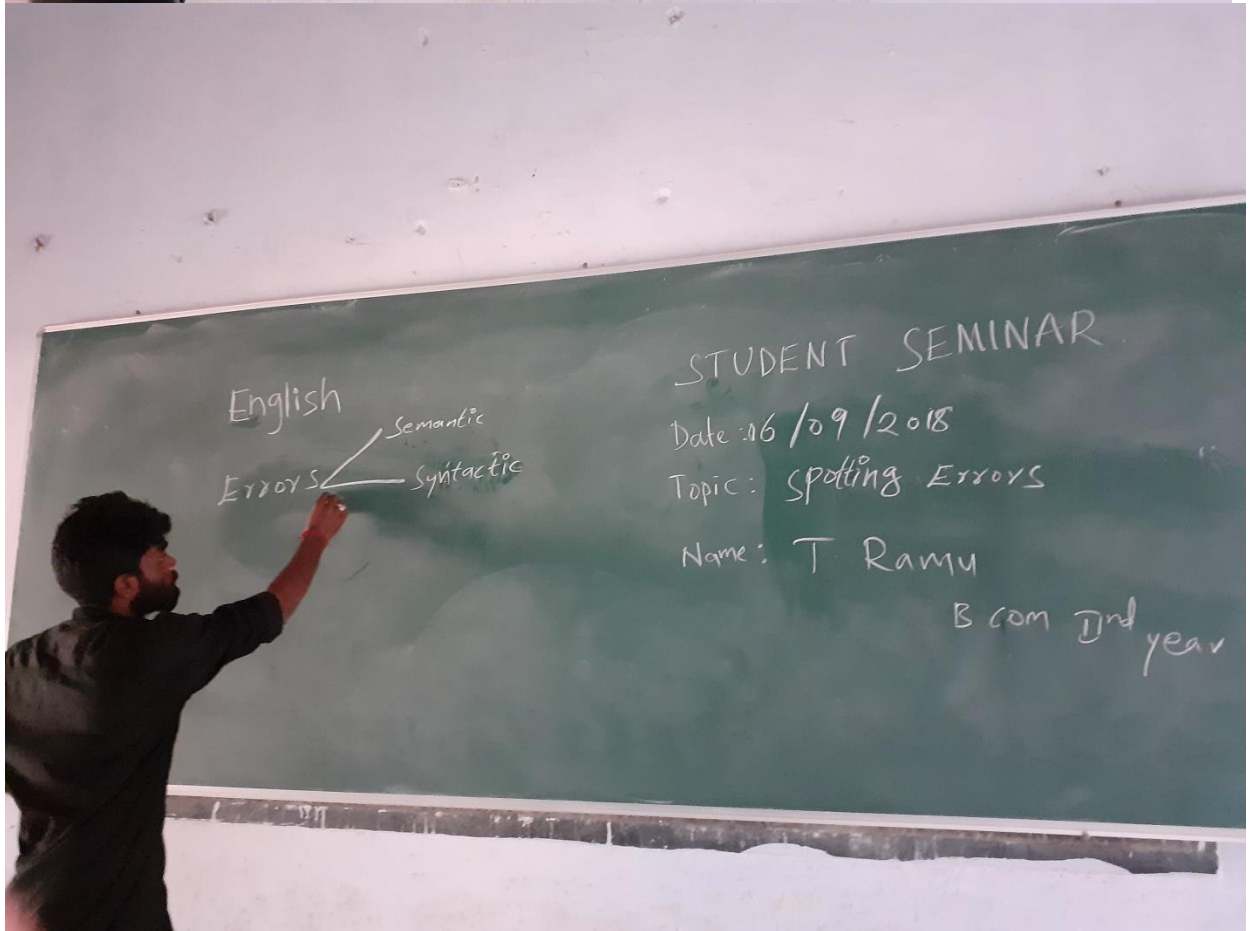 English
Errors
Semantic
Syntactic
STUDENT SEMINAR
Date: 06/09/2018
Topic: Spotting Errors
Name: T Ramu
B com IInd year